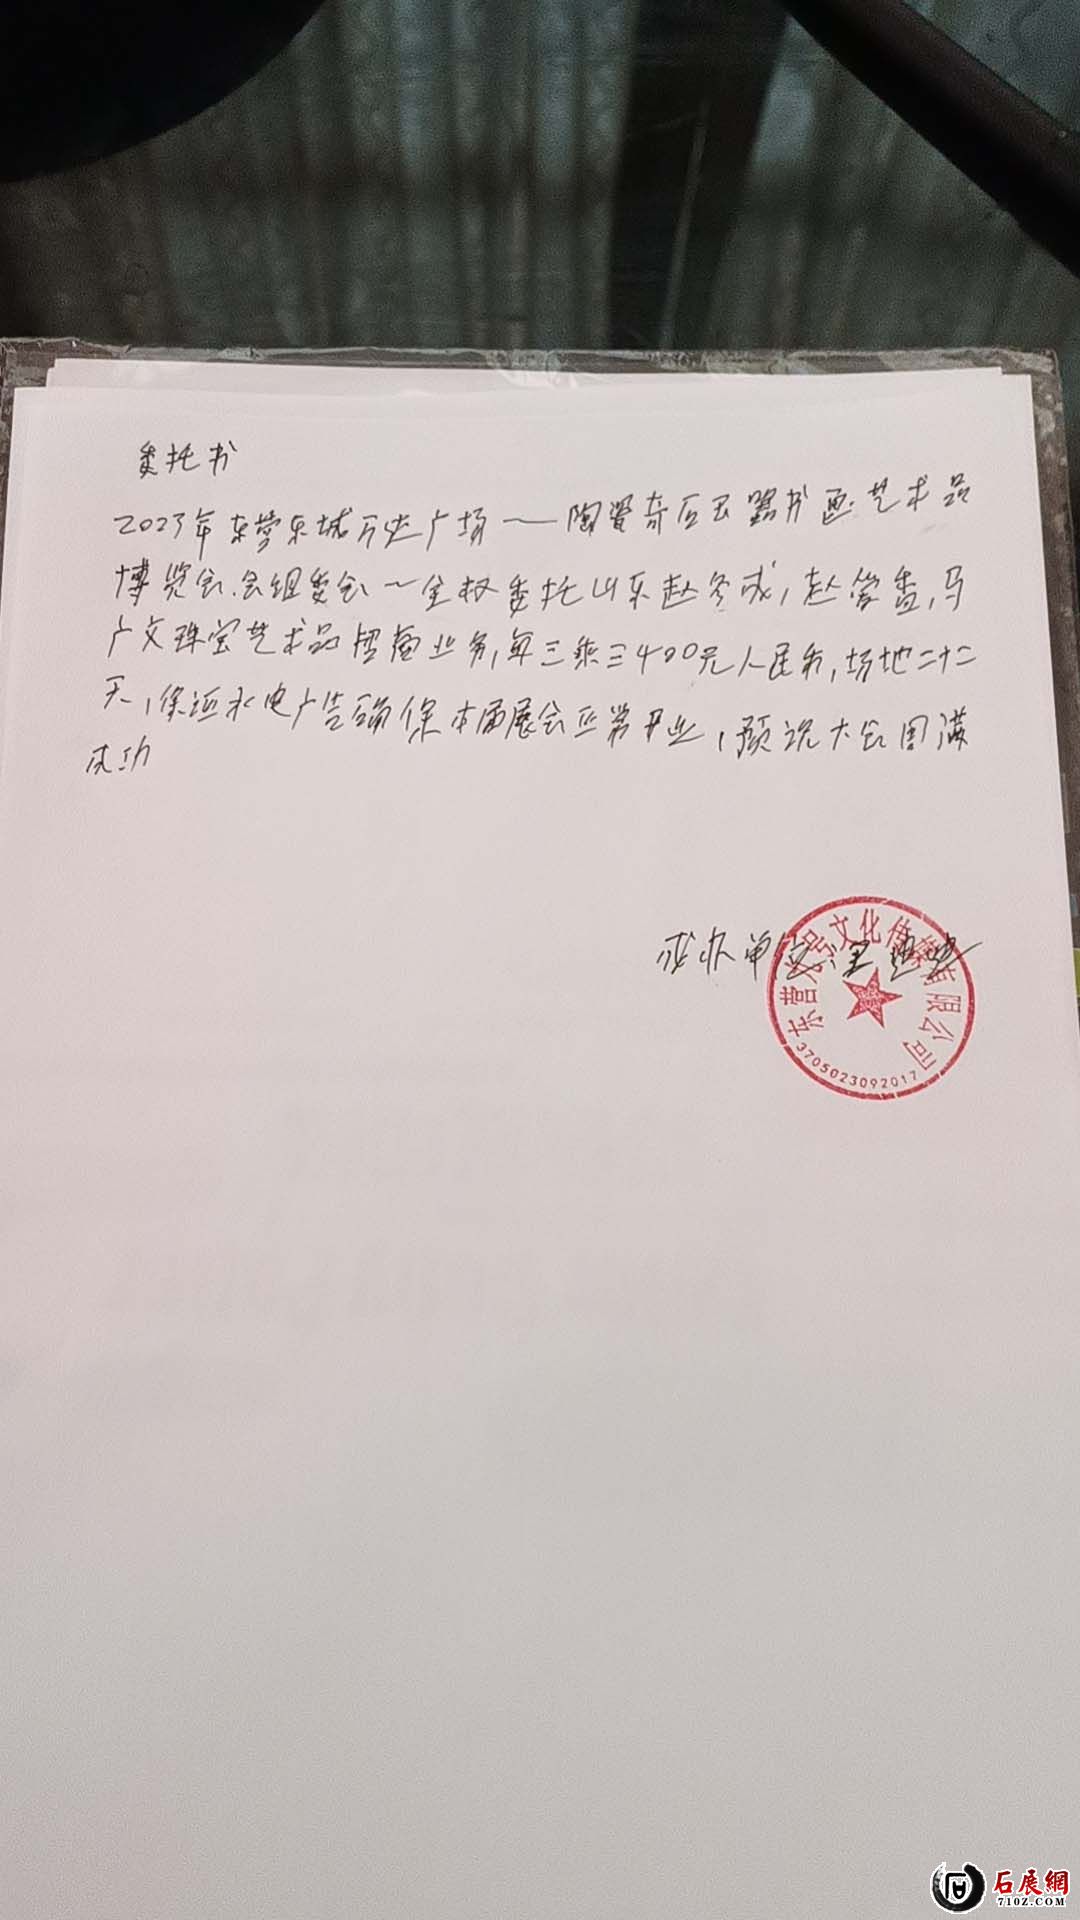 委托书
2023年东营东城万达广场——陶瓷奇石玉器书画.艺术品
博览会.会组委会～全权委托山东赵冬成,赵管香,马
广文珠宝艺术品招商业务,每三乘三400元人民币,场地二十二
天,保证水电广告确保本届展会正常开业,预祝大会圆满
成功
承办单位:
东营 文化传媒有限公司
3705023092017
石展網
710Z.COM